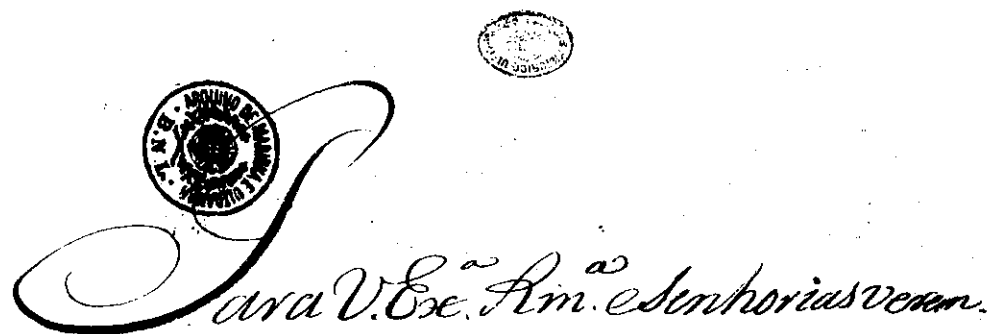 ARQUIVO DE MARINHA E ULTRAMAR · B.N.L.
Para V. Ex.ª Rm.ª e Senhorias verem.